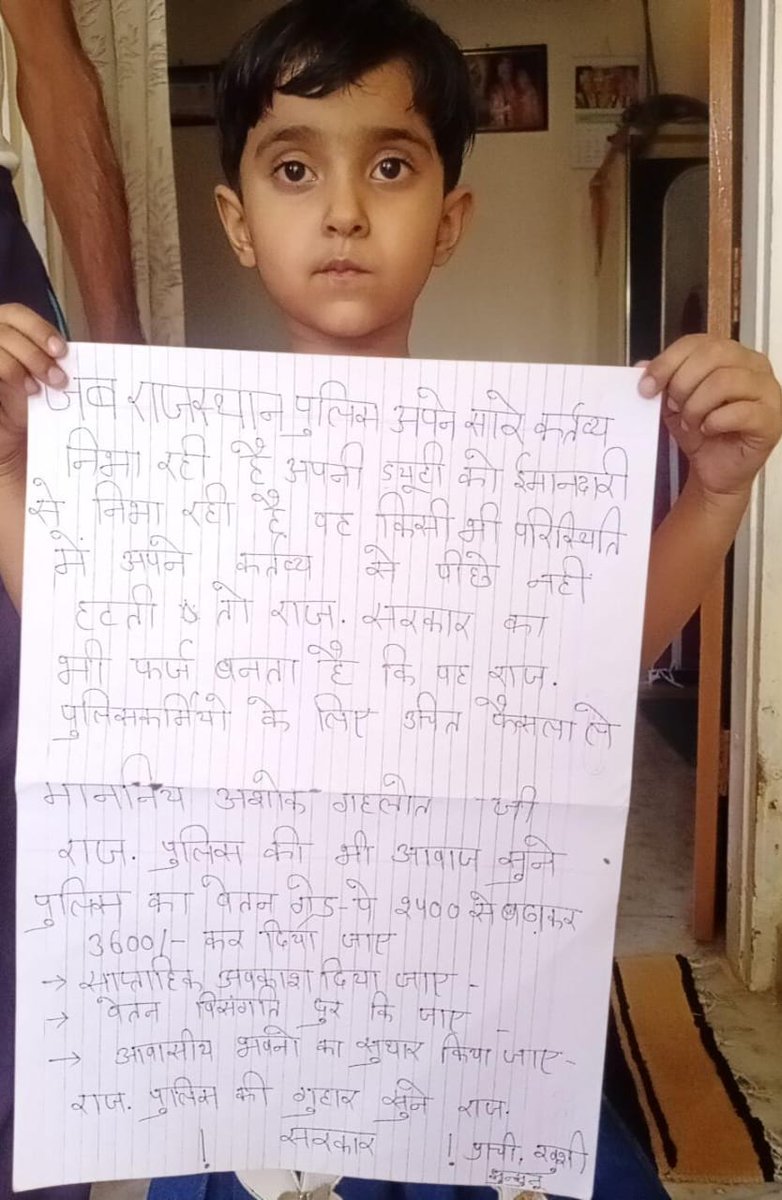 जब राजस्थान पुलिस अपने सारे कर्तव्य
निभा रही है अपनी ड्यूटी को ईमानदारी
से निभा रही है वह किसी भी परिस्थिति
में अपने कर्तव्य से पीछे नहीं
हटती तो राज. सरकार का
भी फर्ज बनता है कि वह राज.
पुलिसकर्मियो के लिए उचित फैसला ले
माननिय अशोक गहलोत जी
राज. पुलिस की भी आवाज सुने
पुलिस का वेतन ग्रेड-पे २५०० से बढ़ाकर
3600/- कर दिया जाए
→ साप्ताहिक अवकाश दिया जाए -
→ वेतन विसंगति दुर कि जाए -
→ आवासीय भवनो का सुधार किया जाए -
राज. पुलिस की गुहार सुने राज.
! सरकार ! प्राची, खुशी
झुन्झुनू